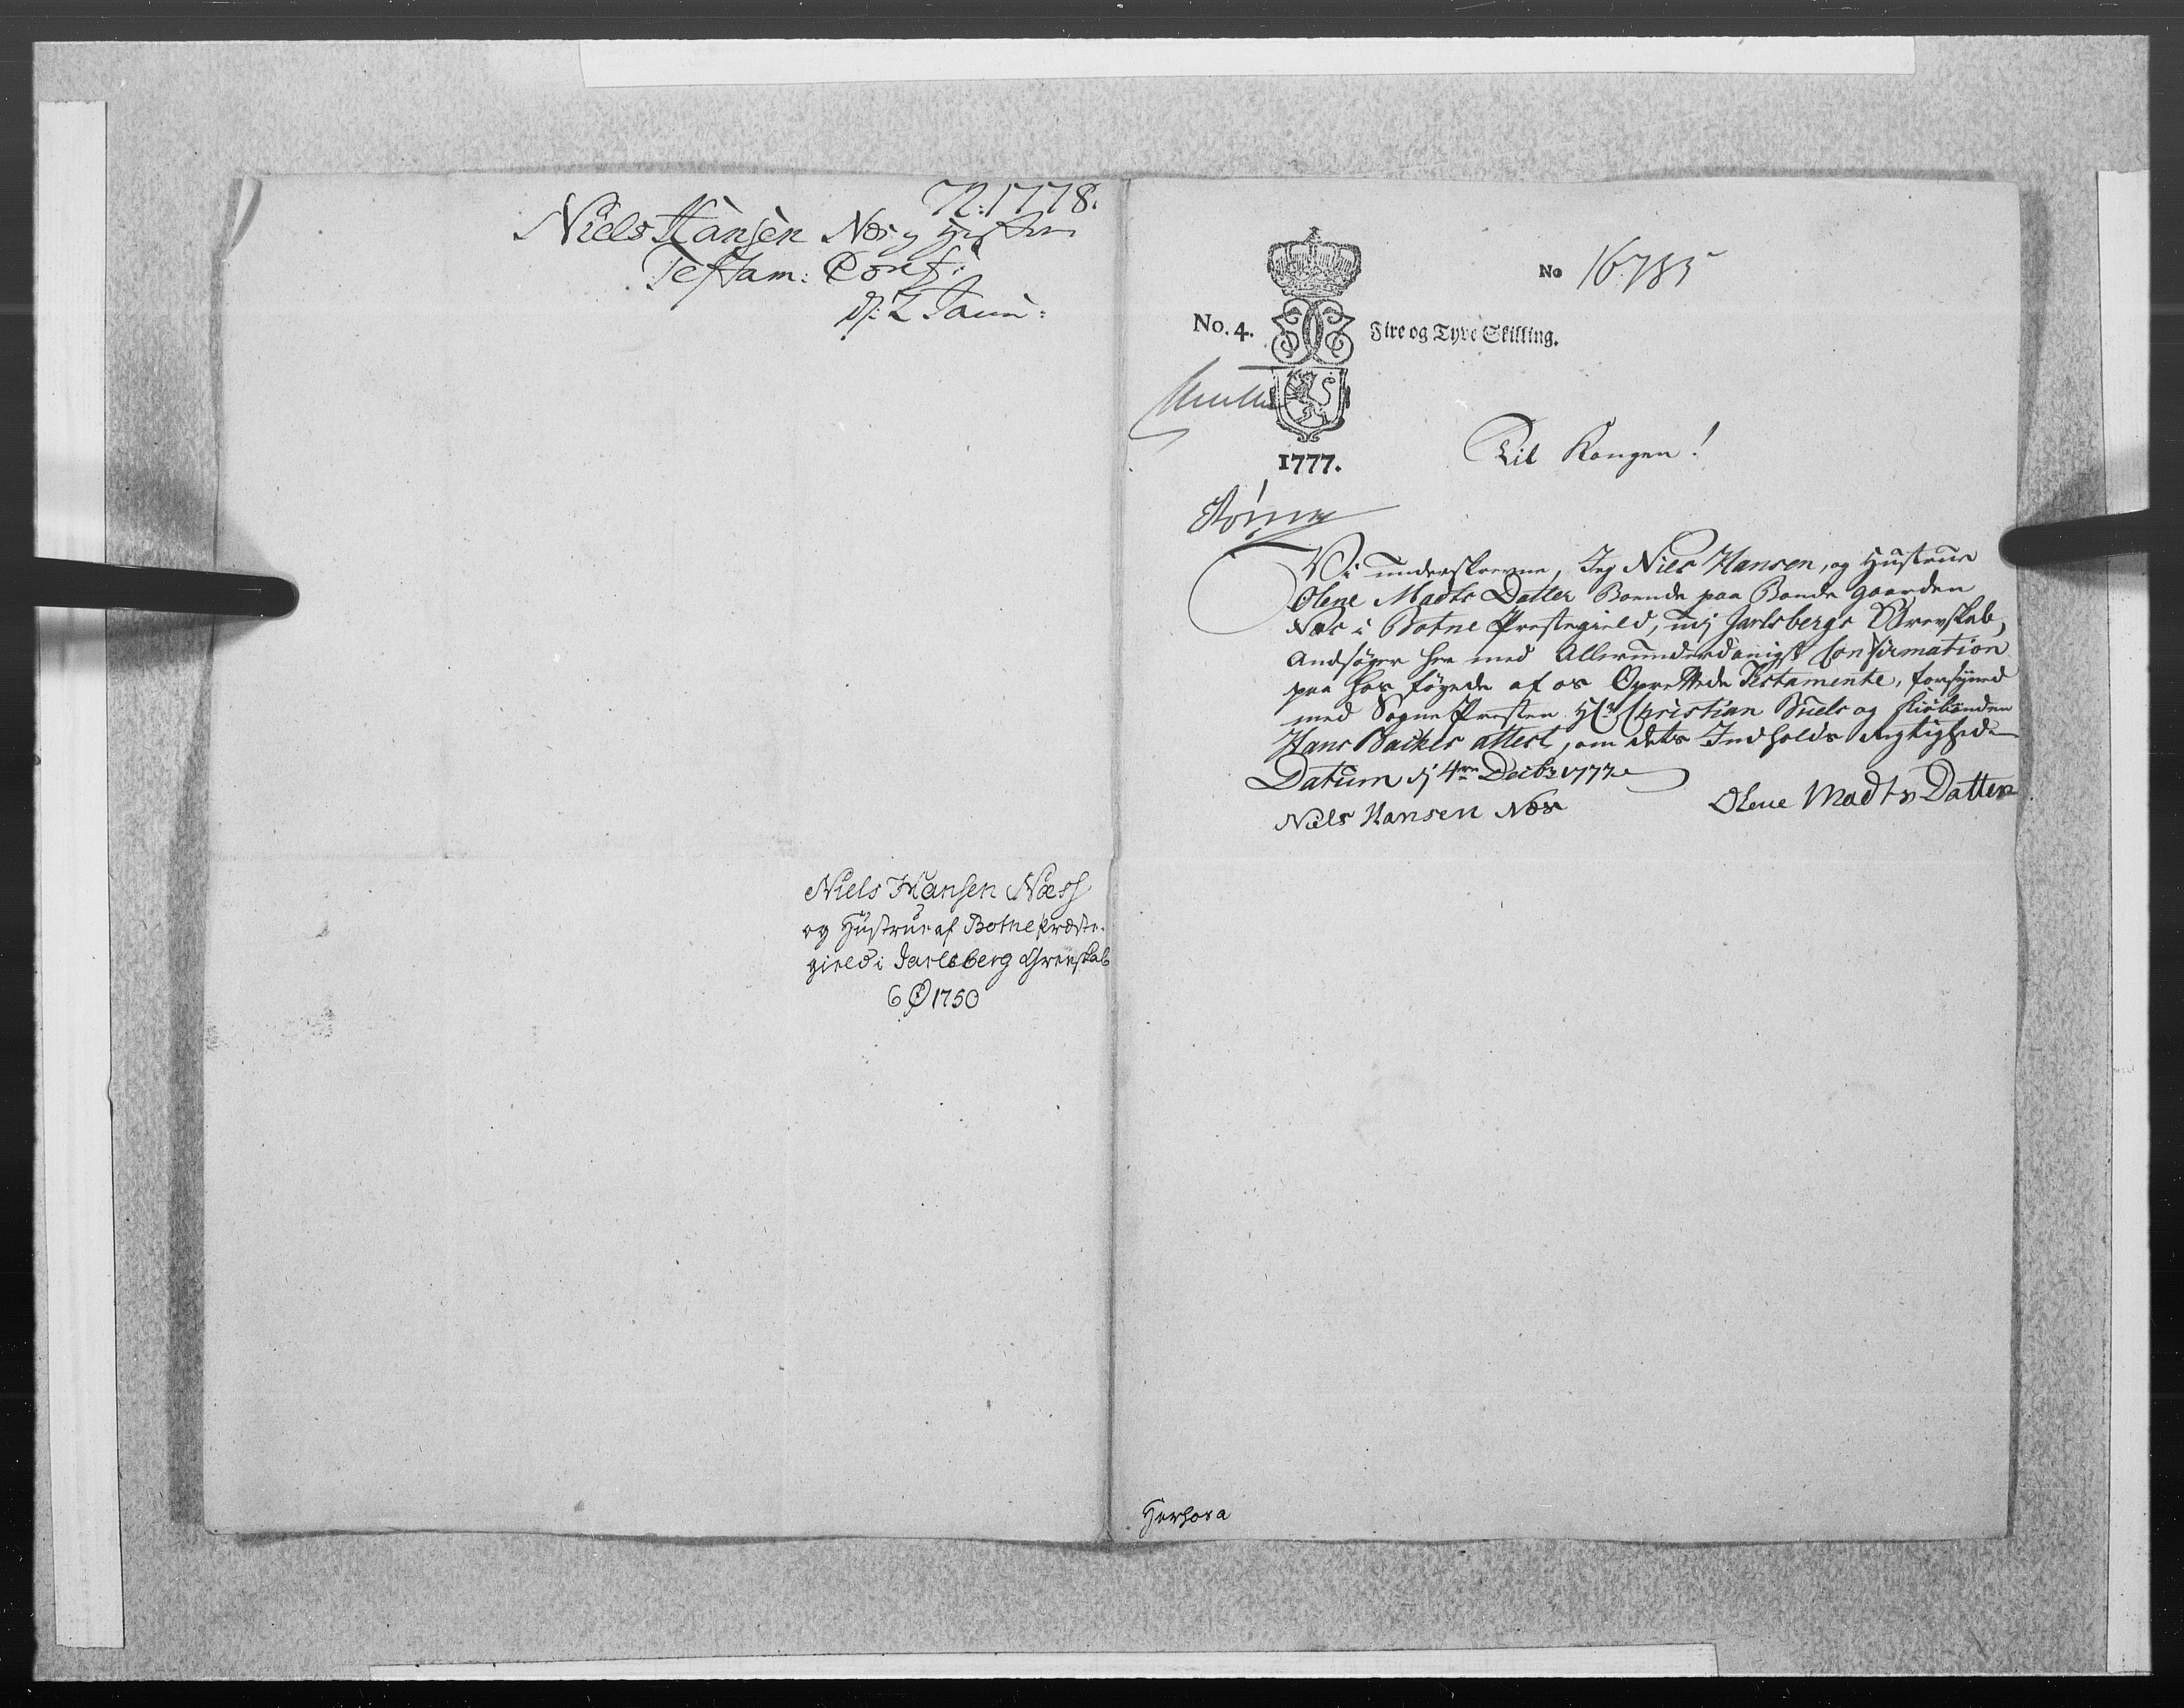 N: 1778.
Niels Hansen Næs og Hustrues
Testam: Conf:
d: 2 Janu:
Niels Hansen Næss
og Hustrue af Botne Præste-
gield i Jarlsberg Grevskab
1750
No 16785
No. 4. Fire og Tyve Skilling.
1777.
Til Kongen!
Vi underskrevne, Jeg Niels Hansen, og Hustrue
Olene Madts Datter Boende paa Bonde gaarden
Næs i Botne Præstegield, udj Jarlsbergs Grevskab,
Andsøger her med Allerunderdanigst Confirmation
paa hos føyede af os Oprettede Testamente, forsÿned
med Sogne Præsten Hr Christian Buels og Kiøbmanden
Hans Backes attest, om dets Indholds Rigtighed
Datum dj 4de Decbr 1777
Niels Hansen Næs
Olene Madts Datter